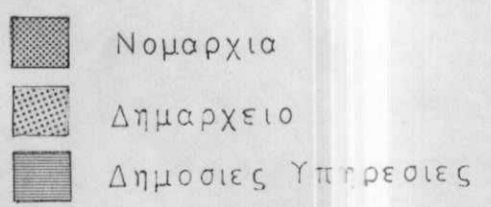 Νομαρχια
Δημαρχειο
Δημοσιες Υπηρεσιες